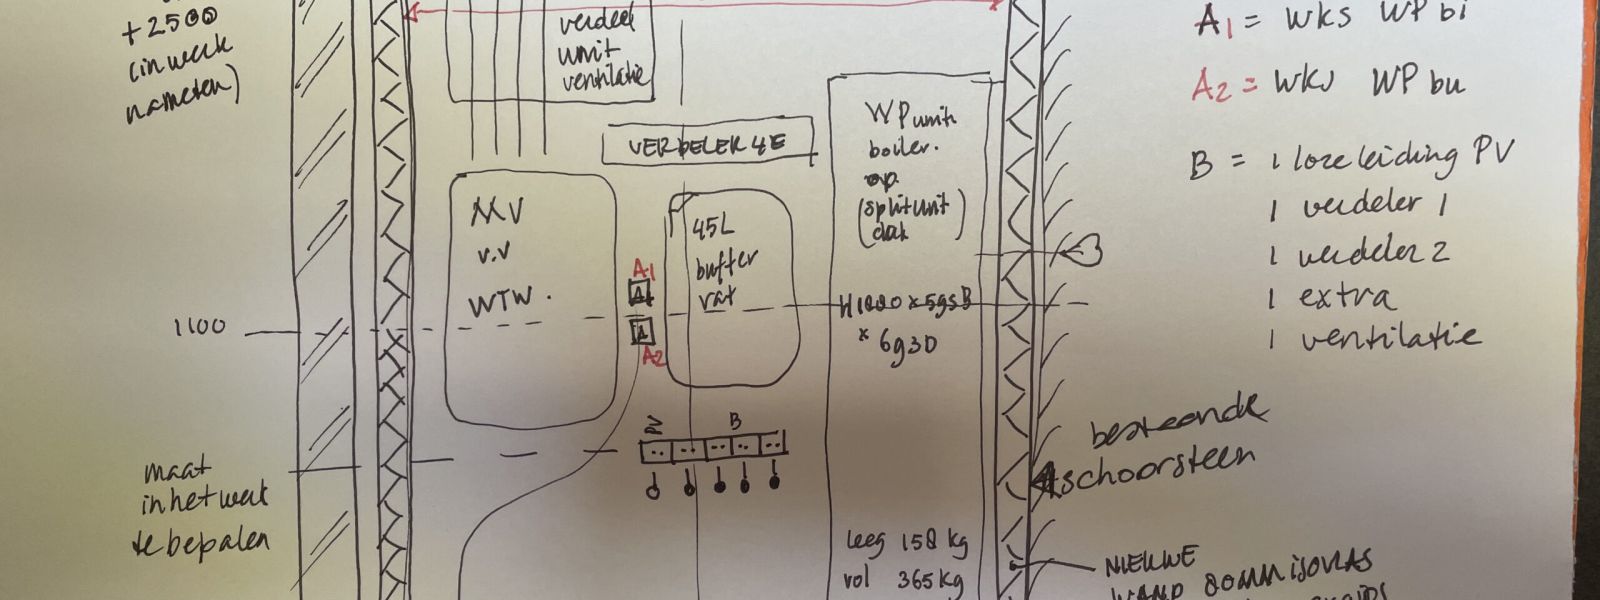 +2500
(in werk
nameten)
verdeel
unit
ventilatie
VERDELER 4E
MV
v.v
WTW.
A1
A2
45L
buffer
vat
WP unit
boiler.
op.
(splitunit
dak)
H1800 x 595B
x 693D
1100
PV
B
maat
in het werk
te bepalen
leeg 158 kg
vol 365 kg
A1 = WKS WP bi
A2 = WKS WP bu
B = 1 loze leiding PV
1 verdeler 1
1 verdeler 2
1 extra
1 ventilatie
bestaande
schoorsteen
NIEUWE
WAND